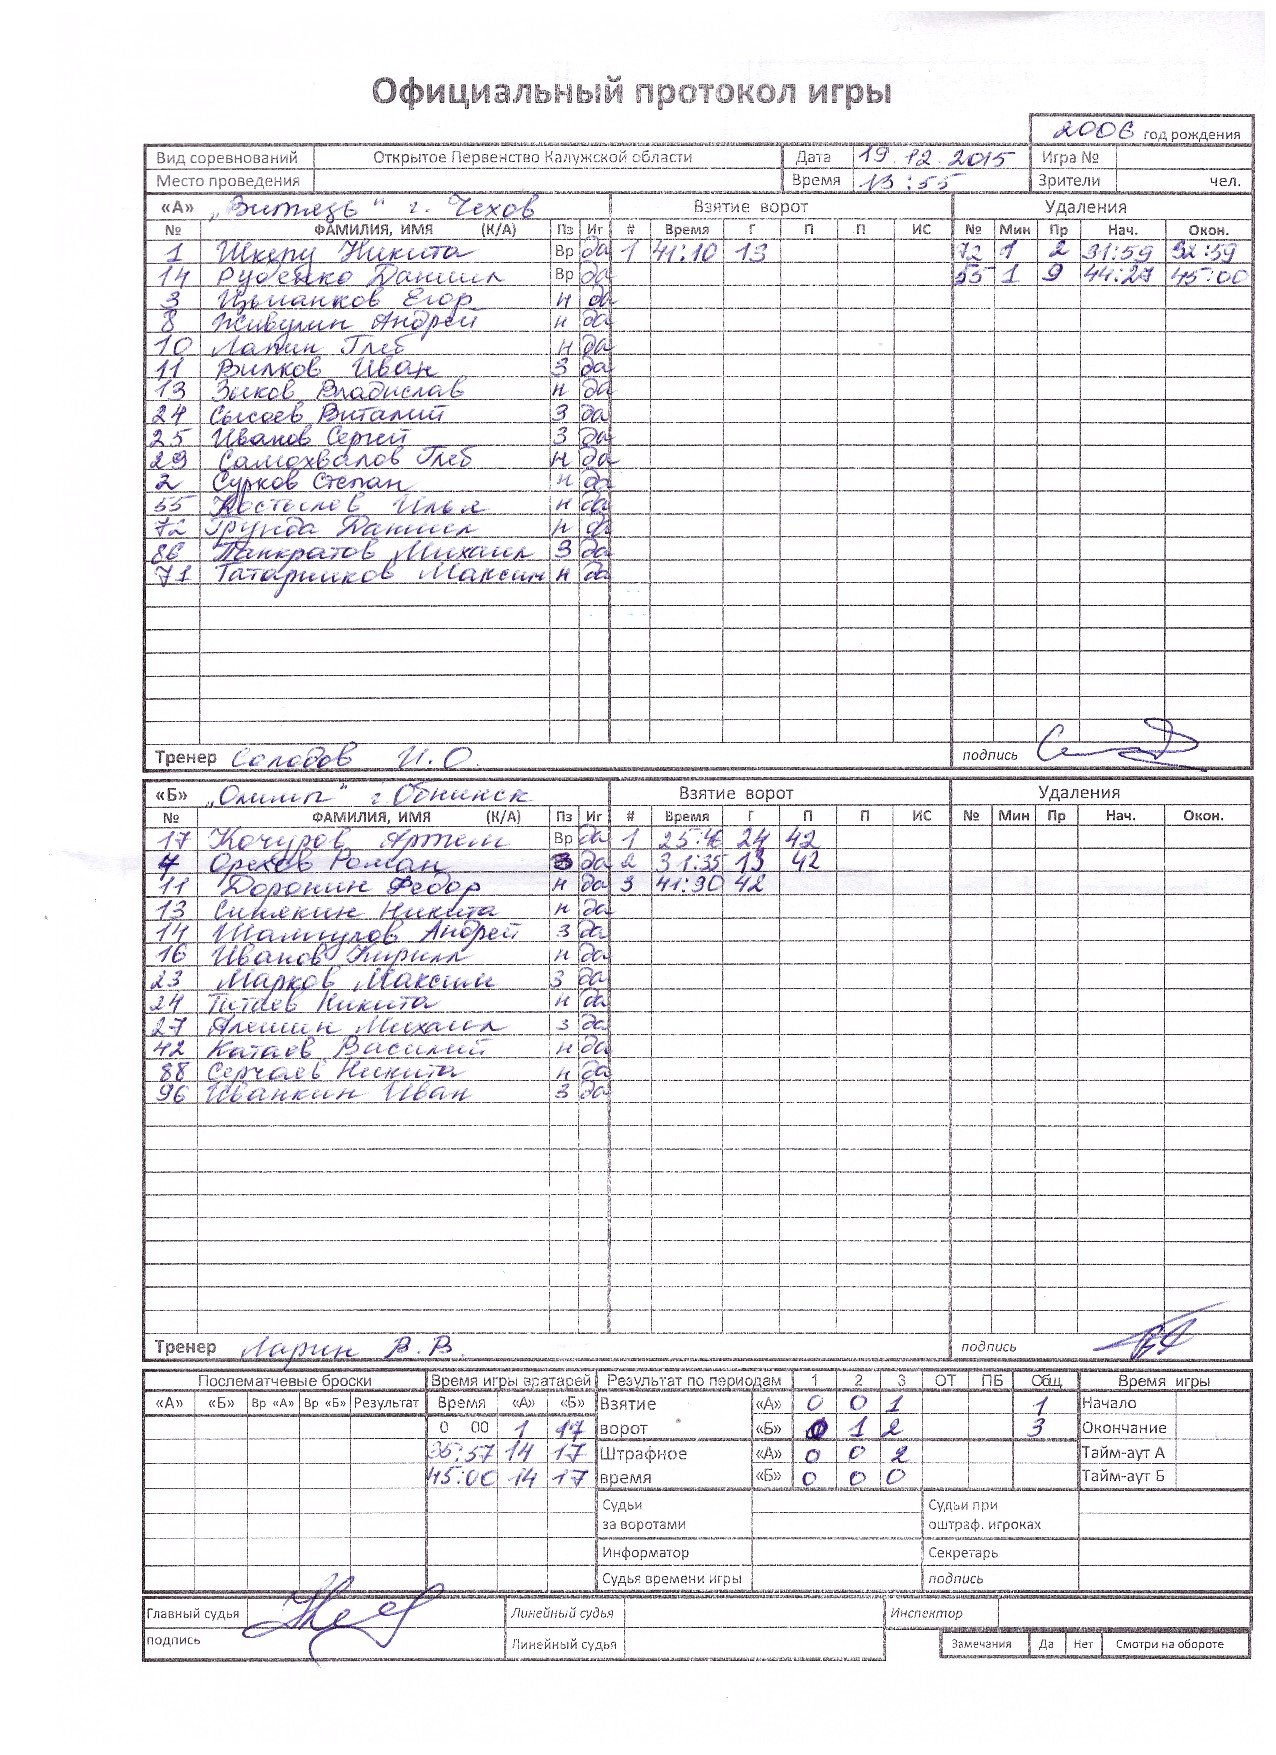 Официальный протокол игры
2006 год рождения
Вид соревнований Открытое Первенство Калужской области Дата 19.12.2015 Игра №
Место проведения Время 13:55 Зрители чел.
«А» „Витязь“ г. Чехов Взятие ворот Удаления
№ ФАМИЛИЯ, ИМЯ (К/А) Пз Иг # Время Г П П ИС № Мин Пр Нач. Окон.
1 Шкепу Никита Вр да 1 41:10 13 72 1 2 31:59 32:59
14 Руденко Даниил Вр да 55 1 9 44:27 45:00
3 Егор н да
8 Живулин Андрей н да
10 Лапин Глеб н да
11 Вилков Иван З да
13 Зыков Владислав н да
24 Сысоев Виталий З да
25 Иванов Сергей З да
29 Самохвалов Глеб н да
2 Сурков Степан н да
55 Костылев Илья н да
72 Грунда Даниил н да
86 Панкратов Михаил З да
71 Татаринков Максим н да
Тренер Солодов И.О. подпись
«Б» „Олимп“ г Обнинск Взятие ворот Удаления
№ ФАМИЛИЯ, ИМЯ (К/А) Пз Иг # Время Г П П ИС № Мин Пр Нач. Окон.
17 Кочуров Артем Вр да 1 24 42
4 Орехов Роман З да 2 31:35 13 42
11 Доронин Федор н да 3 41:30 42
13 Синякин Никита н да
14 Шамшуров Андрей З да
16 Иванов Кирилл н да
23 Марков Максим З да
24 Титаев Никита н да
27 Алешин Михаил З да
42 Катаев Василий н да
88 Серчаев Никита н да
96 Иванкин Иван З да
Тренер Ларин В.В. подпись
Послематчевые броски Время игры вратарей Результат по периодам 1 2 3 ОТ ПБ Общ Время игры
«А» «Б» Вр «А» Вр «Б» Результат Время «А» «Б» Взятие «А» 0 0 1 1 Начало
0 00 1 17 ворот «Б» 0 1 2 3 Окончание
36:57 14 17 Штрафное «А» 0 0 2 Тайм-аут А
45:00 14 17 время «Б» 0 0 0 Тайм-аут Б
Судьи Судьи при
за воротами оштраф. игроках
Информатор Секретарь
Судья времени игры подпись
Главный судья Линейный судья Инспектор
подпись Линейный судья Замечания Да Нет Смотри на обороте